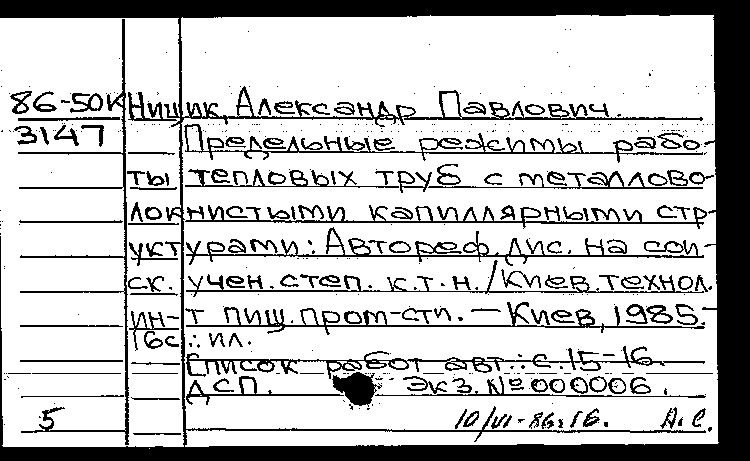 86-50К Нищик, Александр Павлович.
3147 Предельные режимы рабо-
ты тепловых труб с металлово-
локнистыми капиллярными стр-
уктурами: Автореф. дис. на сои-
ск. учен. степ. к.т.н. / Киев. технол.
ин-т пищ. пром-сти. — Киев, 1985.-
16с.: ил.
Список работ авт.: с. 15-16.
ДСП. Экз. №000006.
5 10/VI-86. 16. А.С.